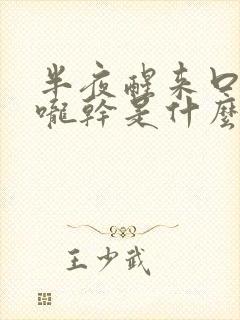 半夜醒来口
嚨幹是什麼
王少武